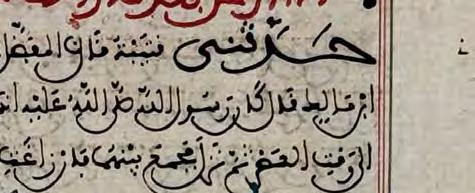 حدثنى قتيبة قال المفضل
ابن مالك قال كان رسول الله صلى الله عليه
الى وقت العصر ثم نزل فجمع بينهما فان زاغت